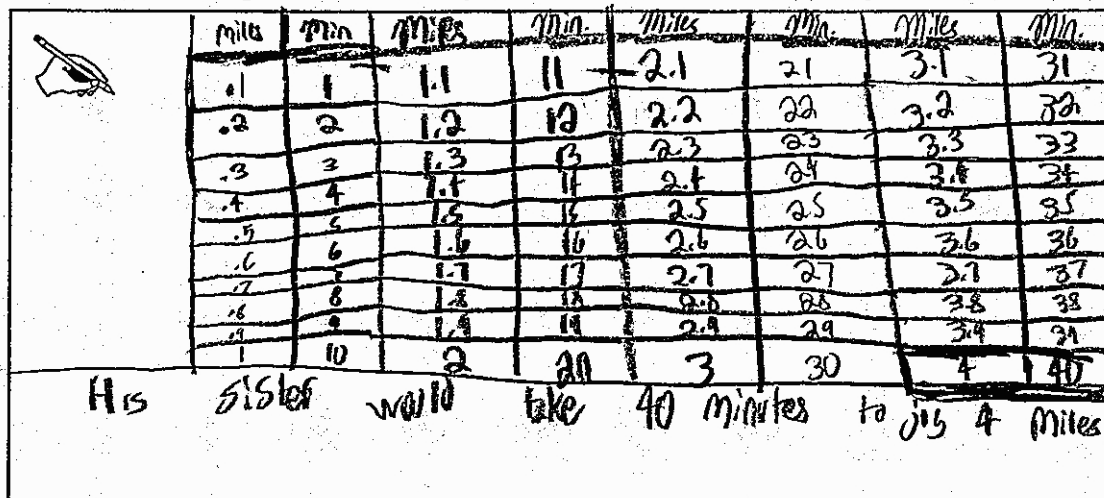 Miles Min Miles Min. Miles Min. Miles Min.
.1 1 1.1 11 2.1 21 3.1 31
.2 2 1.2 12 2.2 22 3.2 32
.3 3 1.3 13 2.3 23 3.3 33
.4 4 1.4 14 2.4 24 3.4 34
.5 5 1.5 15 2.5 25 3.5 35
.6 6 1.6 16 2.6 26 3.6 36
.7 7 1.7 17 2.7 27 3.7 37
.8 8 1.8 18 2.8 28 3.8 38
.9 9 1.9 19 2.9 29 3.9 39
1 10 2 20 3 30 4 40
His sister would take 40 minutes to jog 4 Miles